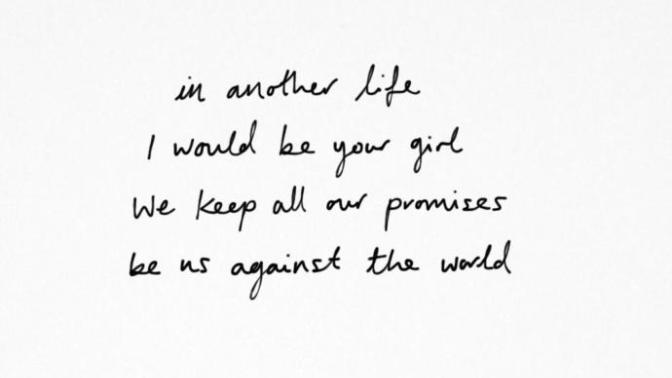 in another life
I would be your girl
We keep all our promises
be us against the world